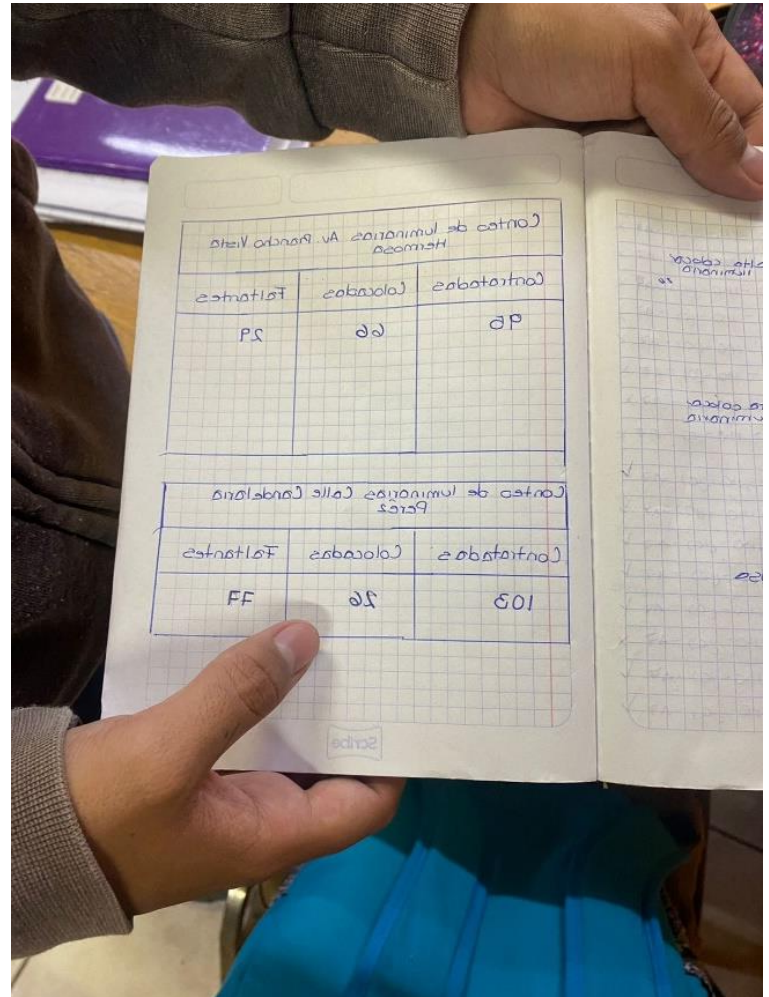 Conteo de luminarias Av Rancho Vista
Hermosa
Contratadas Colocadas Faltantes
95 66 29
Conteo de luminarias Calle Candelaria
Pérez
Contratadas Colocadas Faltantes
103 26 77
Scribe
colocar
luminaria
colocar